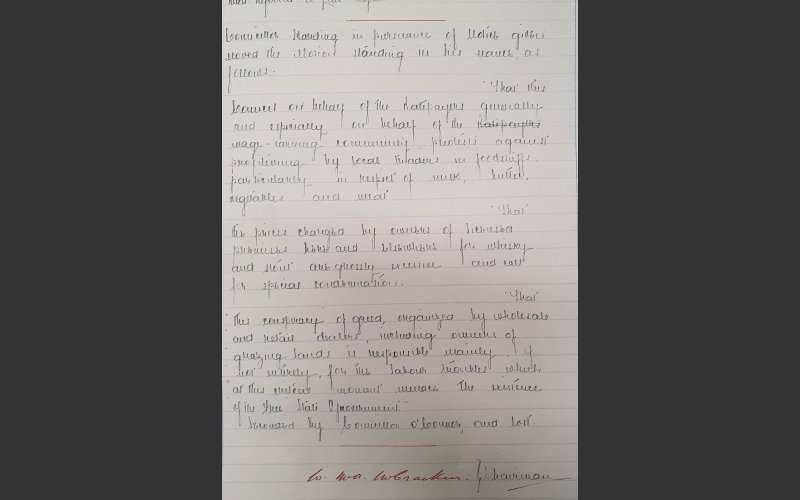 Councillor Standing in pursuance of Notice given
moved the Motion standing in his name, as
follows:-
"That this
Council on behalf of the Ratepayers generally
and especially on behalf of the Ratepayers
wage-earning community protests against
profiteering by local traders in foodstuffs
particularly in respect of milk, butter,
vegetables and meat.
"That
the prices charged by owners of licensed
premises here and elsewhere for whisky
and stout are grossly excessive and call
for special condemnation.
"That
"this conspiracy of greed, organized by wholesale
"and retail dealers, including owners of
"grazing lands is responsible mainly, if
"not entirely, for the labour troubles which
"at this critical moment menace the existence
"of the Free State Government"
Seconded by Councillor O'Connor, and lost.
McCracken. Chairman